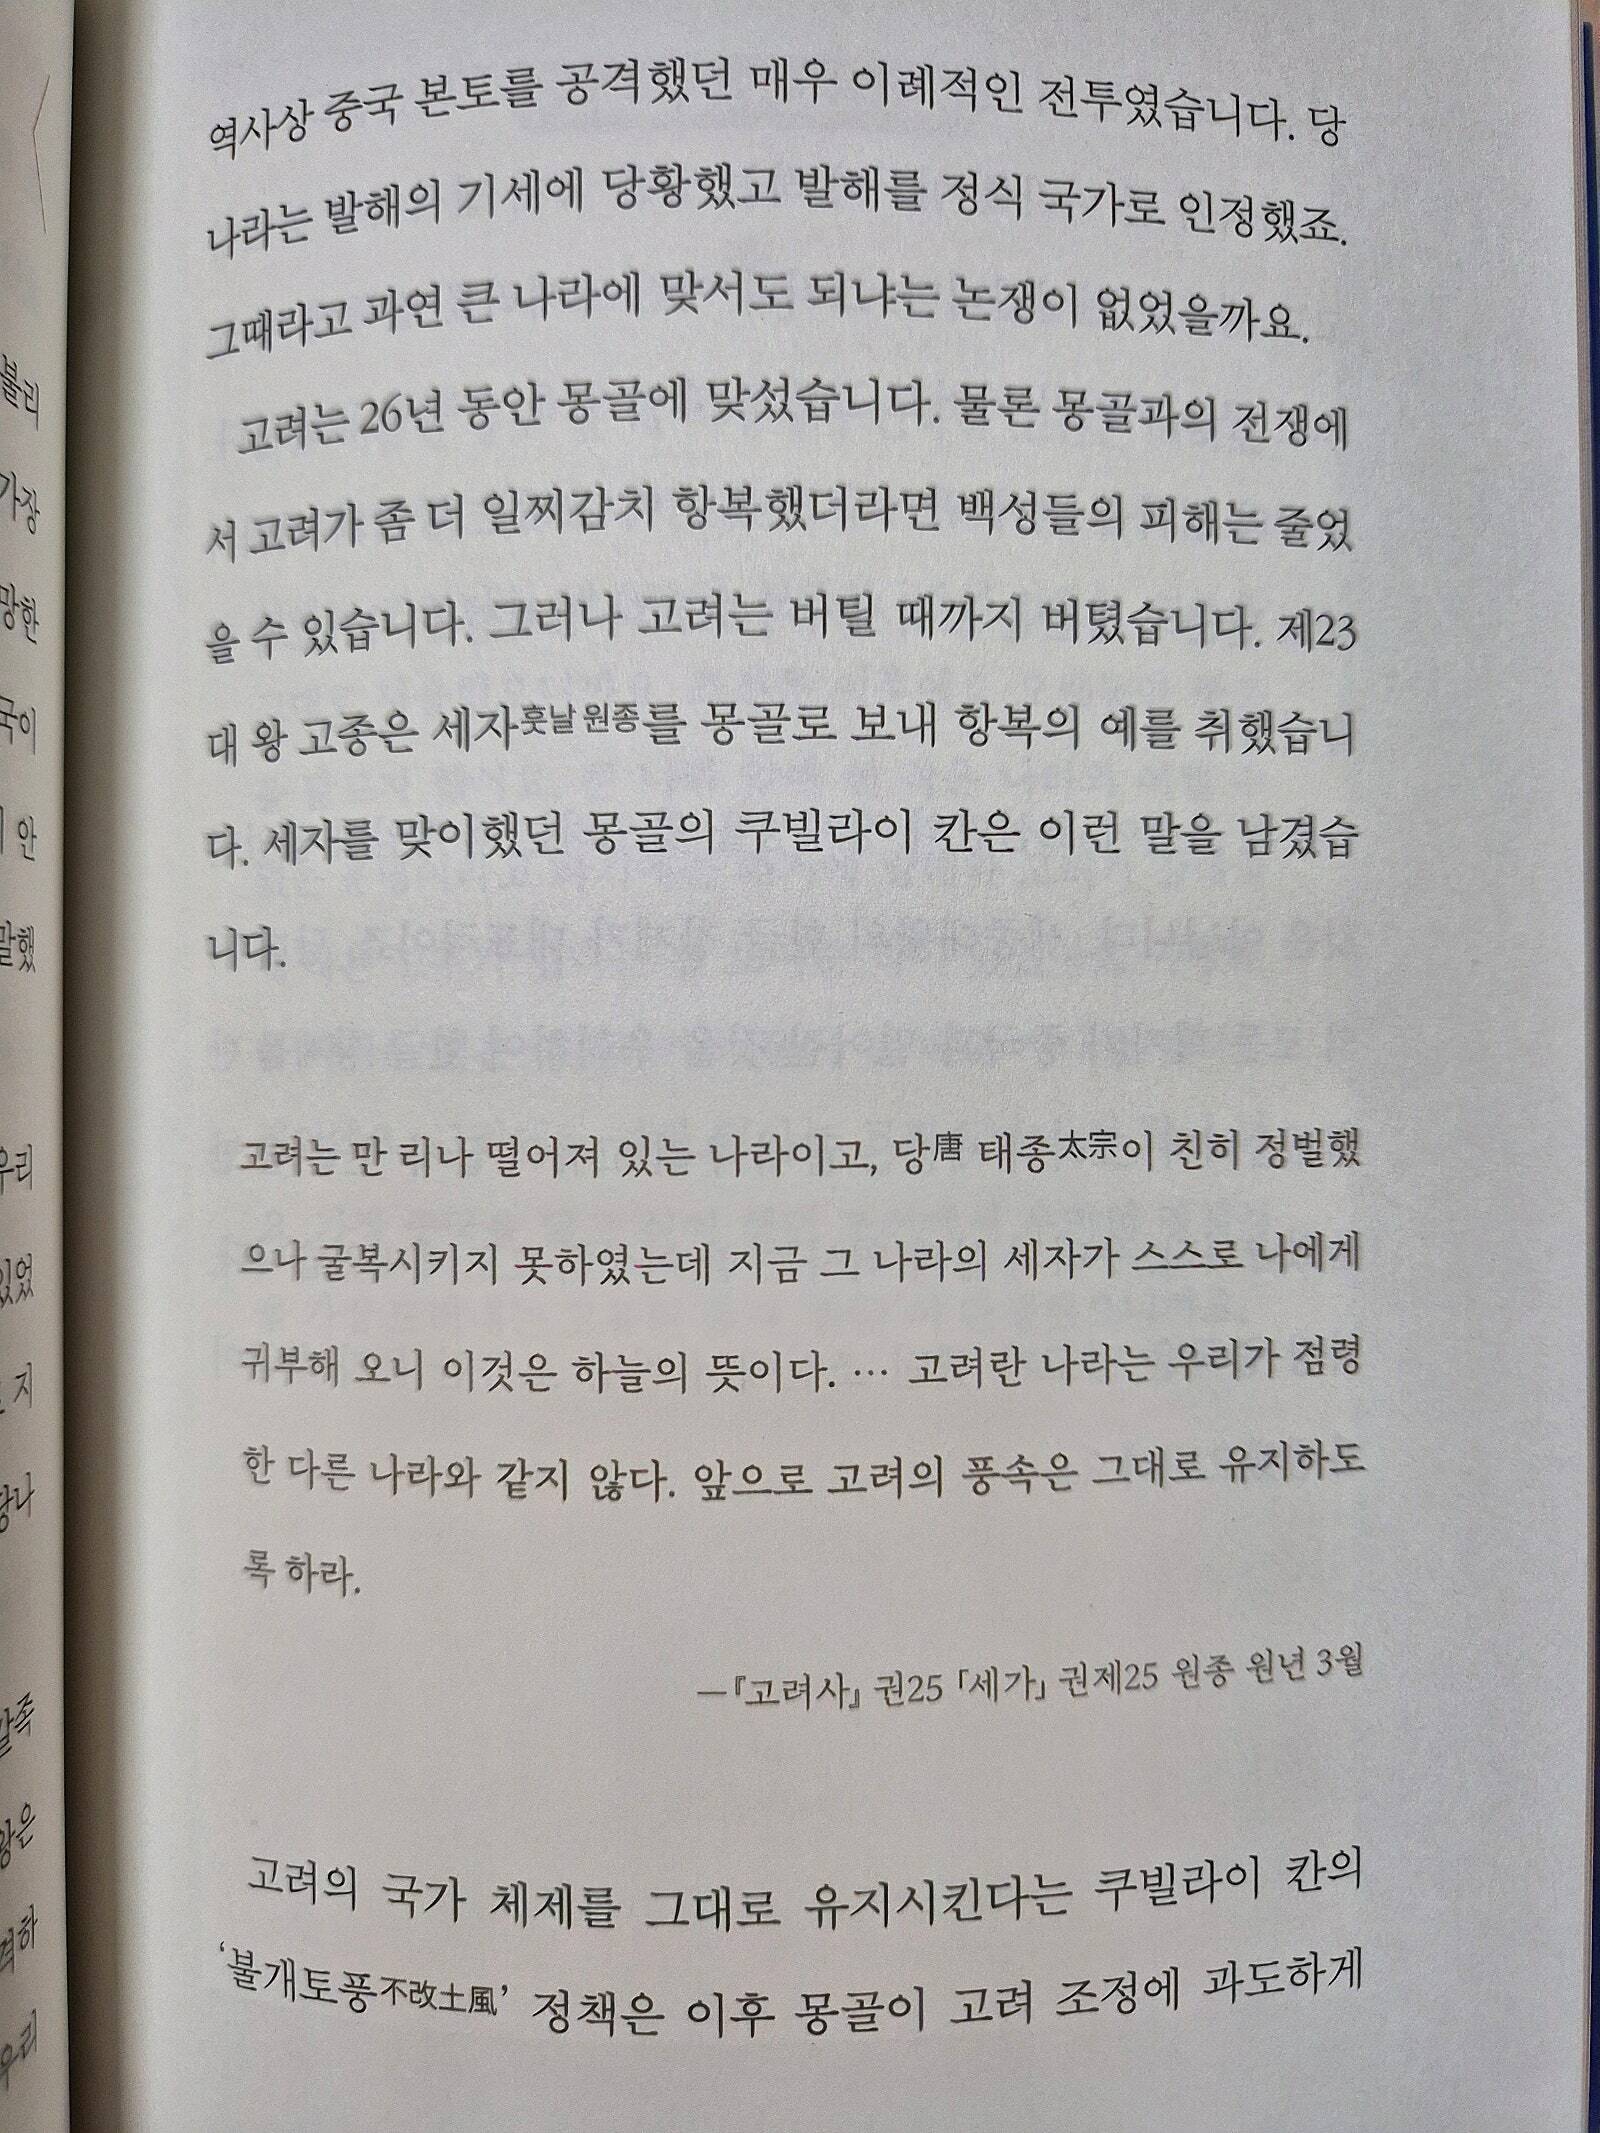 역사상 중국 본토를 공격했던 매우 이례적인 전투였습니다. 당
나라는 발해의 기세에 당황했고 발해를 정식 국가로 인정했죠.
그때라고 과연 큰 나라에 맞서도 되냐는 논쟁이 없었을까요.
고려는 26년 동안 몽골에 맞섰습니다. 물론 몽골과의 전쟁에
서 고려가 좀 더 일찌감치 항복했더라면 백성들의 피해는 줄었
을 수 있습니다. 그러나 고려는 버틸 때까지 버텼습니다. 제23
대 왕 고종은 세자훗날 원종를 몽골로 보내 항복의 예를 취했습니
다. 세자를 맞이했던 몽골의 쿠빌라이 칸은 이런 말을 남겼습
니다.
고려는 만 리나 떨어져 있는 나라이고, 당唐 태종太宗이 친히 정벌했
으나 굴복시키지 못하였는데 지금 그 나라의 세자가 스스로 나에게
귀부해 오니 이것은 하늘의 뜻이다. … 고려란 나라는 우리가 점령
한 다른 나라와 같지 않다. 앞으로 고려의 풍속은 그대로 유지하도
록 하라.
—『고려사』 권25 「세가」 권제25 원종 원년 3월
고려의 국가 체제를 그대로 유지시킨다는 쿠빌라이 칸의
‘불개토풍不改土風’ 정책은 이후 몽골이 고려 조정에 과도하게